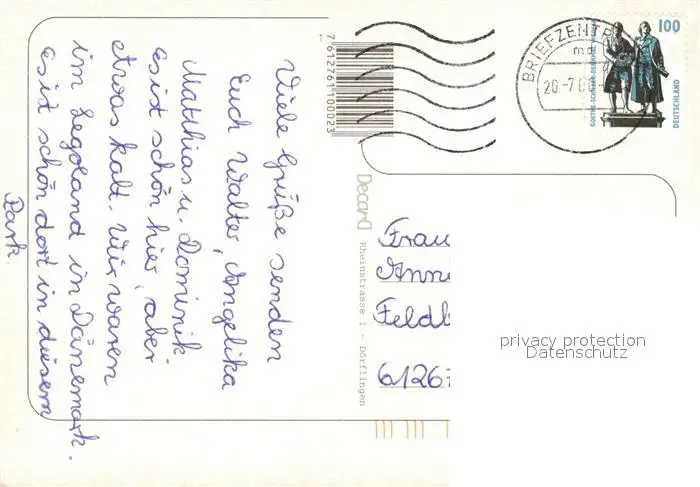 Viele Grüße senden
Euch Walter, Angelika
Matthias u. Dominik.
es ist schön hier, aber
etwas kalt. Wir waren
im Legoland in Dänemark.
es ist schön dort in diesem
Park.
7 612761 100023
Decard Rheinstrasse 1 - Dörflingen
BRIEFZENTR
md
20.-7.
100
DEUTSCHLAND
Frau
Anne
Feldb
6126
privacy protection
Datenschutz